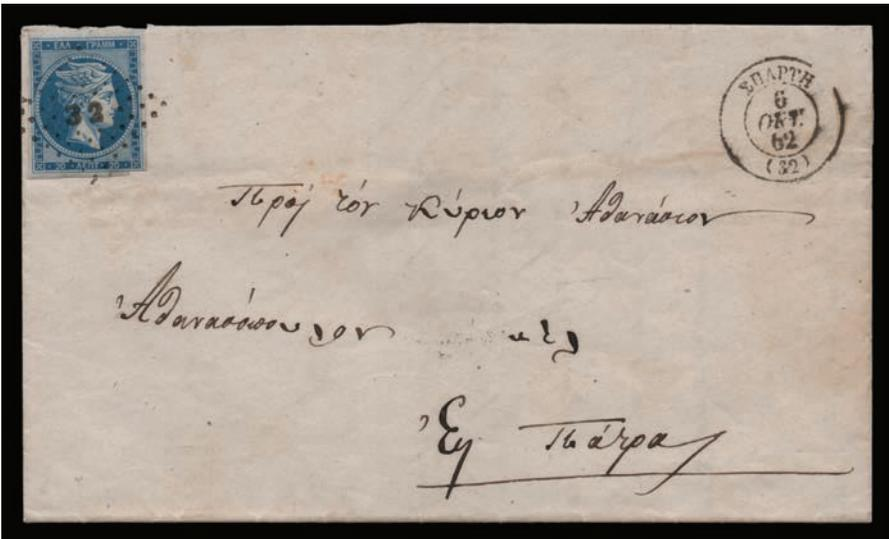 ΕΛΛ ΓΡΑΜΜ
32
20 ΛΕΠΤ 20
ΣΠΑΡΤΗ
6
ΟΚΤ.
62
(32)
Πρὸς τόν Κύριον Ἀθανάσιον
Ἀθανασόπουλον κτλ
Ἐς Πάτρας